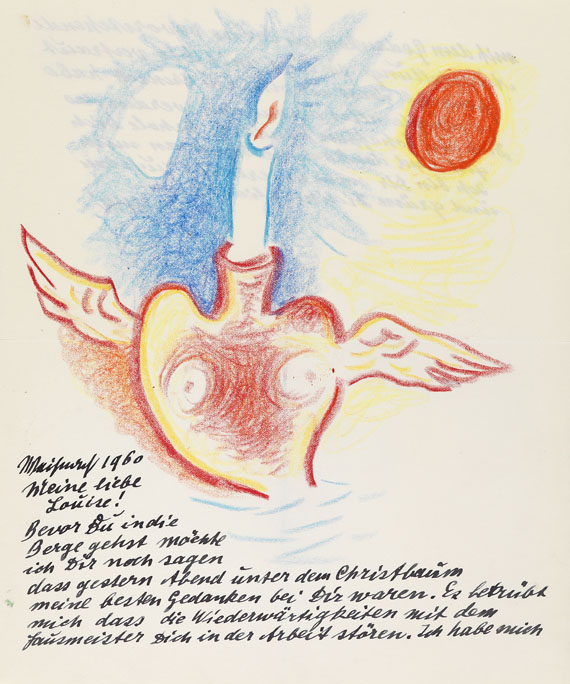 Weihnacht 1960
Meine liebe
Louise!
Bevor Du in die
Berge gehst möchte
ich Dir noch sagen
dass gestern Abend unter dem Christbaum
meine besten Gedanken bei Dir waren. Es betrübt
mich dass die Wiederwärtigkeiten mit dem
Hausmeister Dich in der Arbeit stören. Ich habe mich